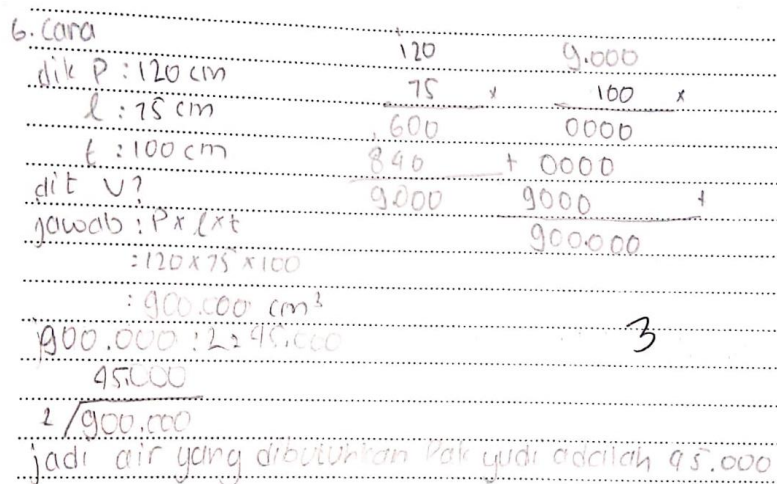 6. Cara
dik P : 120 cm
l : 75 cm
t : 100 cm
dit V?
jawab : P x l x t
: 120 x 75 x 100
: 900.000 cm³
900.000 : 2 = 45.000
45.000
2 /900.000
jadi air yang dibutuhkan Pak yudi adalah 45.000
120
75 x
600
840 +
9.000
9.000
100 x
0000
0000
9000 +
900.000
3